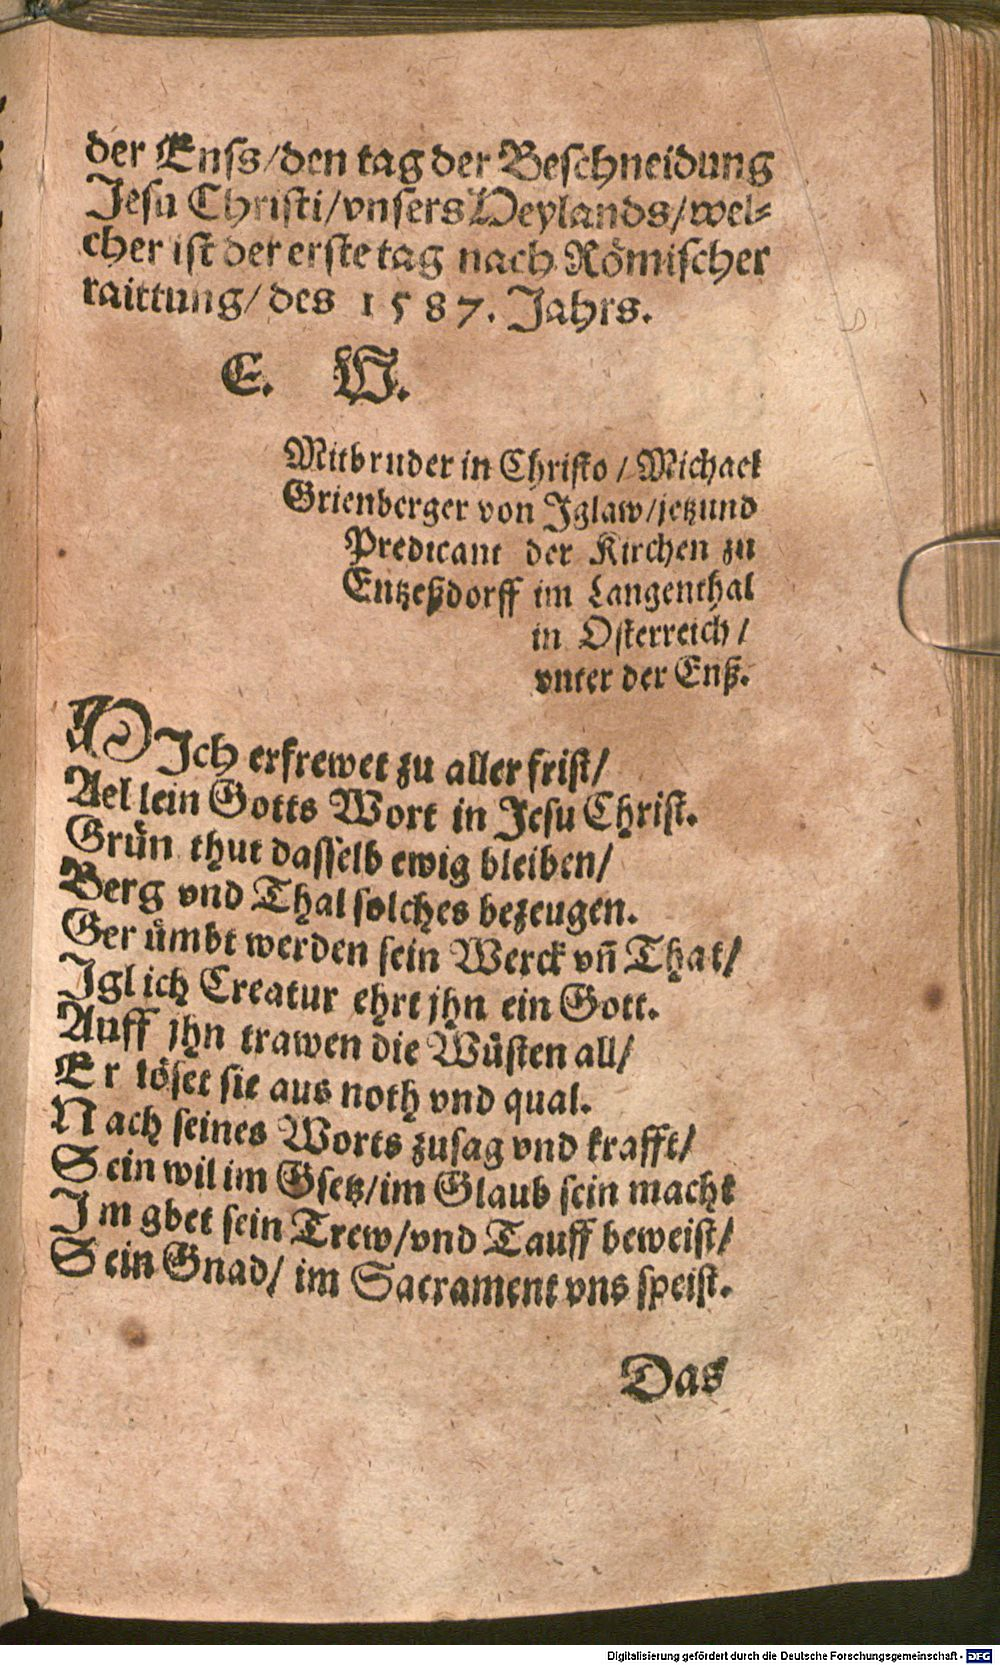 der Enſs/den tag der Beſchneidung
Jeſu Chriſti/vnſers Heylands/wel⸗
cher iſt der erſte tag nach Römiſcher
raittung/ des 1587. Jahrs.
E. W.
Mitbruder in Chriſto / Michael
Grienberger von Jglaw/jetzund
Predicant der Kirchen zu
Entzeßdorff im Langenthal
in Oſterreich /
vnter der Enß.
MJch erfrewet zu aller friſt/
Ael lein Gotts Wort in Jeſu Chriſt.
Grün thut daſſelb ewig bleiben/
Berg vnd Thal ſolches bezeugen.
Ger ümbt werden ſein Werck vñ That/
Jgl ich Creatur ehrt jhn ein Gott.
Auff jhn trawen die Wüſten all/
E r löſet ſie aus noth vnd qual.
N ach ſeines Worts zuſag vnd krafft/
S ein wil im Gſetz/im Glaub ſein macht
J m gbet ſein Trew/vnd Tauff beweiſt/
S ein Gnad/ im Sacrament vns ſpeiſt.
Das
Digitalisierung gefördert durch die Deutsche Forschungsgemeinschaft - DFG